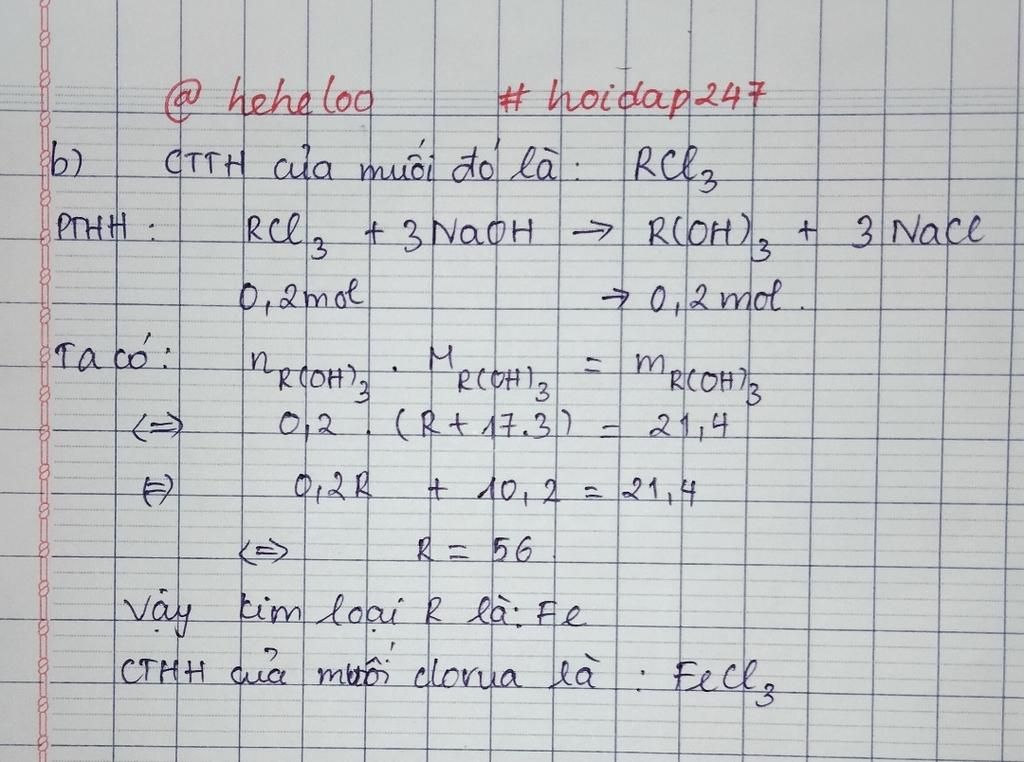 @ heheloo # hoidap247
b) CTTH của muối đó là: RCl₃
PTHH: RCl₃ + 3NaOH → R(OH)₃ + 3NaCl
0,2mol → 0,2mol.
Ta có: n_R(OH)₃ . M_R(OH)₃ = m_R(OH)₃
<=> 0,2 . (R + 17.3) = 21,4
<=> 0,2R + 10,2 = 21,4
<=> R = 56
Vậy kim loại R là: Fe
CTHH của muối clorua là : FeCl₃